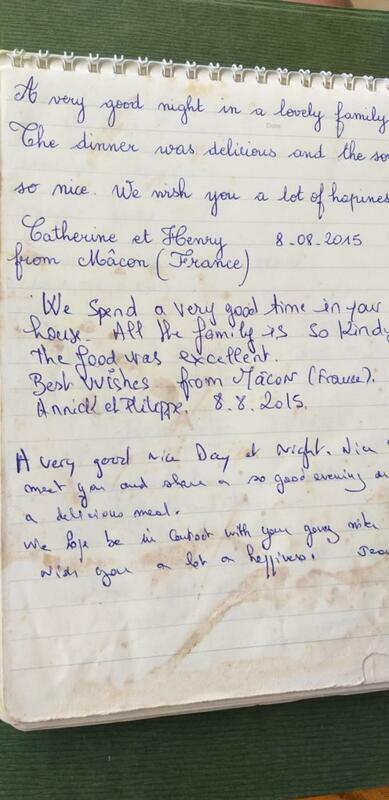 A very good night in a lovely family
The dinner was delicious and the
so nice. We wish you a lot of hapines
Catherine et Henry 8-08-2015
from Mâcon (France)
We spend a very good time in your
house. All the family is so kindy
the food was excellent.
Best wishes from Mâcon (France).
Annick et Philippe. 8.8.2015.
A very good nice Day et Night. Nice
meet you and share a so good evening
a delicious meal.
We hope be in contact with your
wish you a lot a happiness.